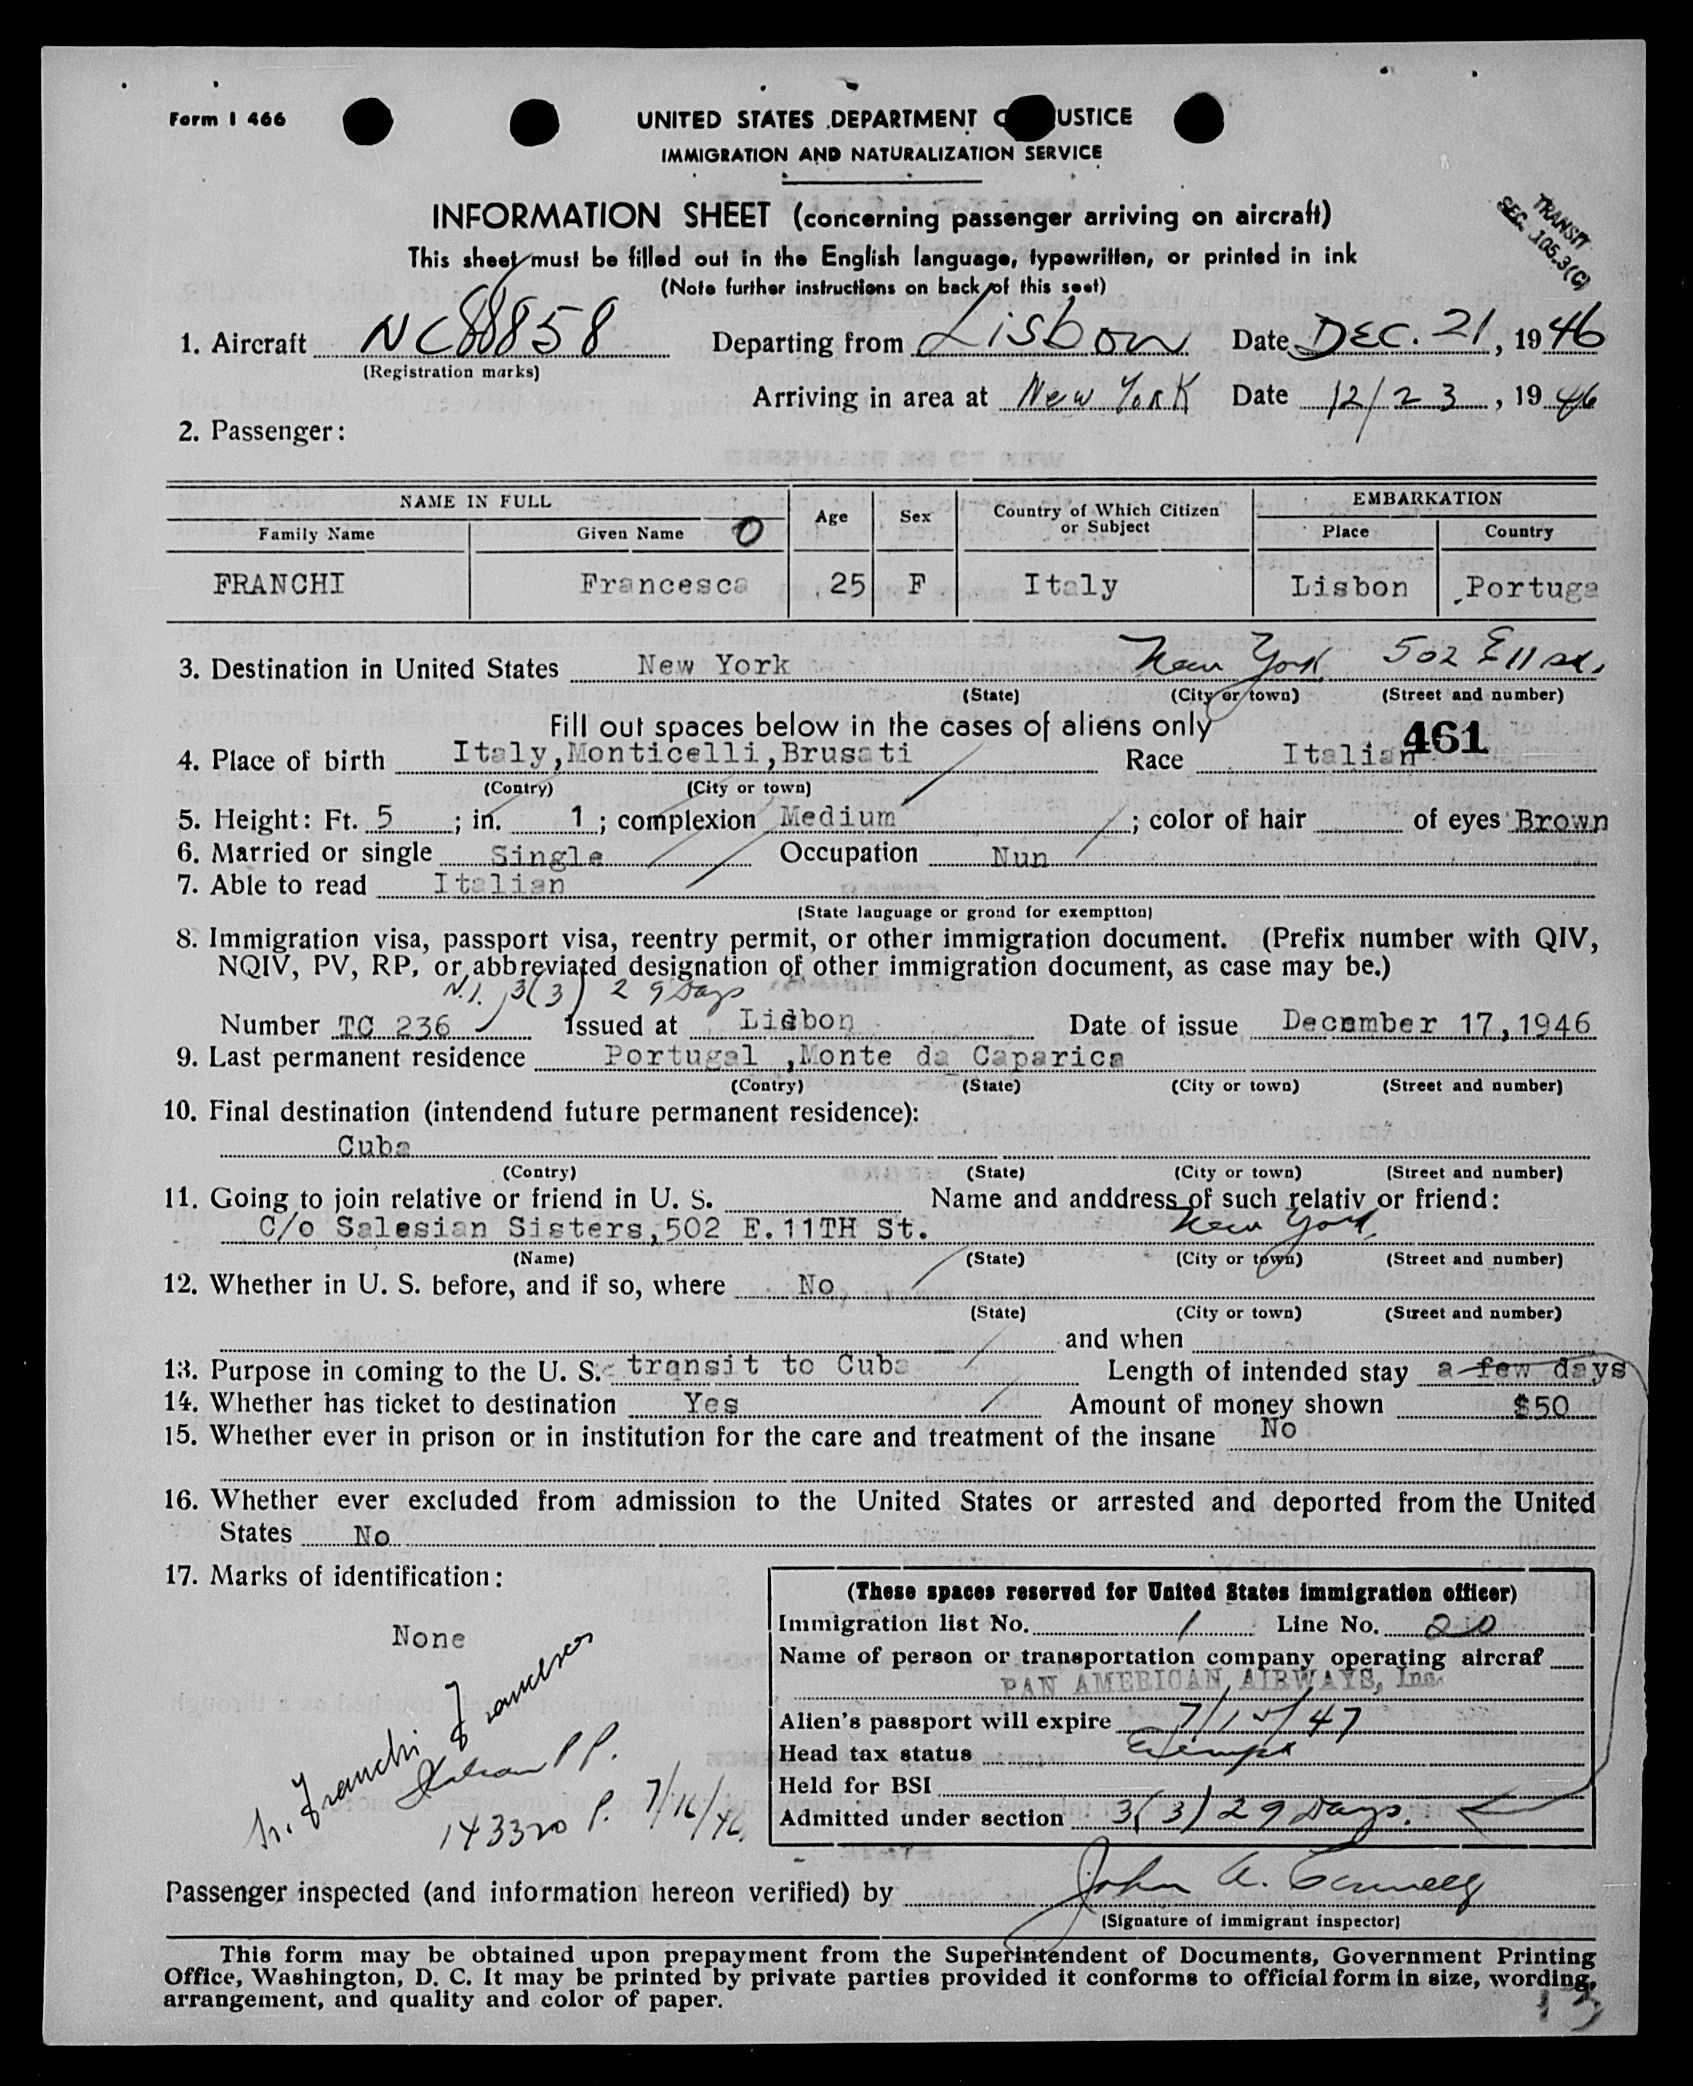 Form I 466
UNITED STATES DEPARTMENT USTICE
IMMIGRATION AND NATURALIZATION SERVICE
TRANSIT
SEC. 105.3(C)
INFORMATION SHEET (concerning passenger arriving on aircraft)
This sheet must be filled out in the English language, typewritten, or printed in ink
(Note further instructions on back of this seet)
1. Aircraft NC88858 Departing from Lisbon Date DEC. 21, 1946
(Registration marks)
Arriving in area at New York Date 12/23, 1946
2. Passenger:
NAME IN FULL Age Sex Country of Which Citizen or Subject EMBARKATION
Family Name Given Name O Place Country
FRANCHI Francesca 25 F Italy Lisbon Portuga
3. Destination in United States New York New York 502 E 11 St.
(State) (City or town) (Street and number)
Fill out spaces below in the cases of aliens only
461
4. Place of birth Italy,Monticelli,Brusati Race Italian
(Contry) (City or town)
5. Height: Ft. 5 ; in. 1 ; complexion Medium ; color of hair of eyes Brown
6. Married or single Single Occupation Nun
7. Able to read Italian
(State language or grond for exemption)
8. Immigration visa, passport visa, reentry permit, or other immigration document. (Prefix number with QIV,
NQIV, PV, RP, or abbreviated designation of other immigration document, as case may be.)
N.I. 3(3) 29 Days
Number TC 236 Issued at Lisbon Date of issue December 17,1946
9. Last permanent residence Portugal ,Monte da Caparica
(Contry) (State) (City or town) (Street and number)
10. Final destination (intendend future permanent residence):
Cuba
(Contry) (State) (City or town) (Street and number)
11. Going to join relative or friend in U. S. Name and anddress of such relativ or friend:
C/o Salesian Sisters,502 E.11TH St. New York
(Name) (State) (City or town) (Street and number)
12. Whether in U. S. before, and if so, where No
(State) (City or town) (Street and number)
and when
13. Purpose in coming to the U. S. transit to Cuba Length of intended stay a few days
14. Whether has ticket to destination Yes Amount of money shown $50
15. Whether ever in prison or in institution for the care and treatment of the insane No
16. Whether ever excluded from admission to the United States or arrested and deported from the United
States No
17. Marks of identification:
None
Sr. Franchi Francesca
Italian P.P.
143320 P. 7/16/46
(These spaces reserved for United States immigration officer)
Immigration list No. 1 Line No. 20
Name of person or transportation company operating aircraf
PAN AMERICAN AIRWAYS, Inc.
Alien's passport will expire 7/15/47
Head tax status Exempt
Held for BSI
Admitted under section 3(3) 29 Days.
Passenger inspected (and information hereon verified) by John A.
(Signature of immigrant inspector)
This form may be obtained upon prepayment from the Superintendent of Documents, Government Printing
Office, Washington, D. C. It may be printed by private parties provided it conforms to official form in size, wording,
arrangement, and quality and color of paper.